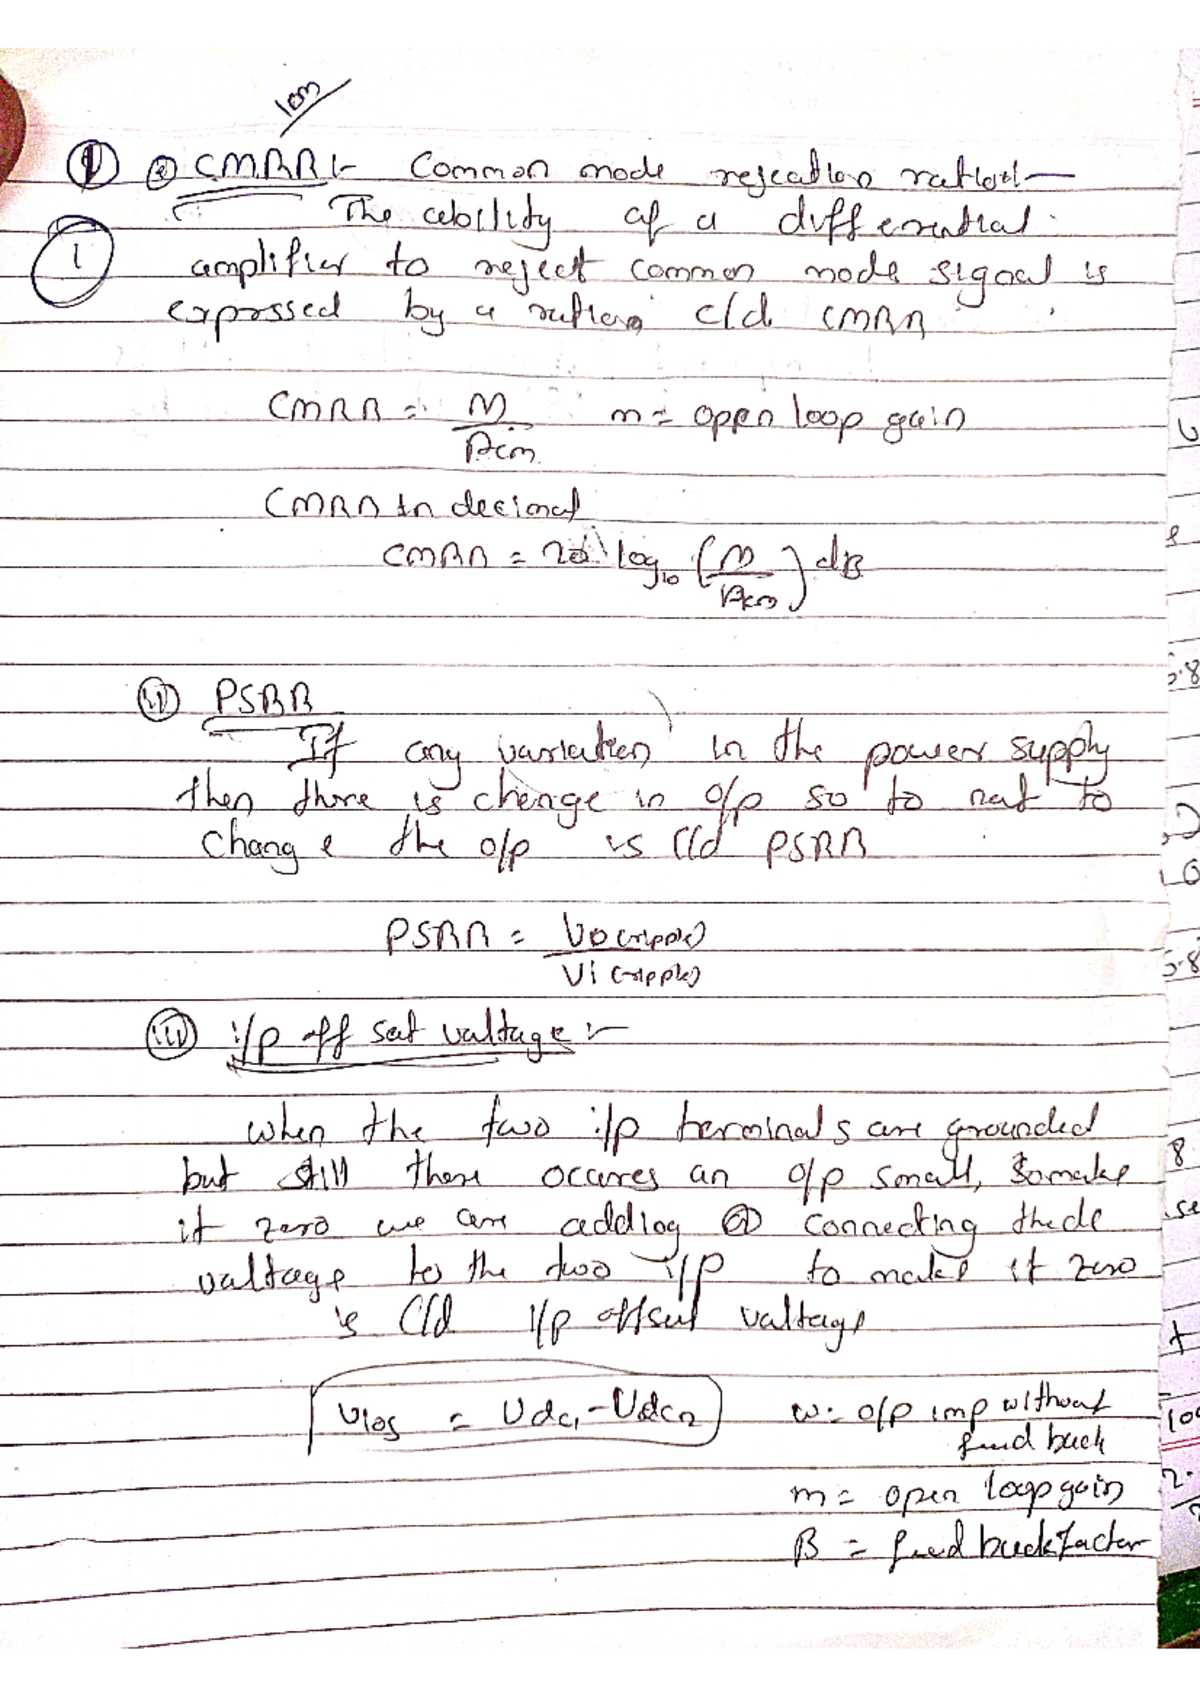 10m
① ⓐ CMRR :- Common mode rejection ratio :-
1
The ability of a differential
amplifier to reject common mode signal is
exprssed by a ration c/d CMRR
CMRR = M/Acm m = open loop gain
CMRR in decimal
CMRR = 20 log10 (M/Acm) dB
ⅱ PSRR
If any variation in the power supply
then there is change in o/p so to not to
change the o/p is c/d PSRR
PSRR = Vo (ripple)/Vi (ripple)
ⅲ i/p off set voltage :-
when the two i/p terminals are grounded
but still there occures an o/p small, so make
it zero we are adding connecting the dc
voltage to the two i/p to make it zero
is c/d i/p offset voltage
Vios = Vdc1 - Vdc2 w = o/p imp without
feed back
m = open loop gain
B = feed back factor